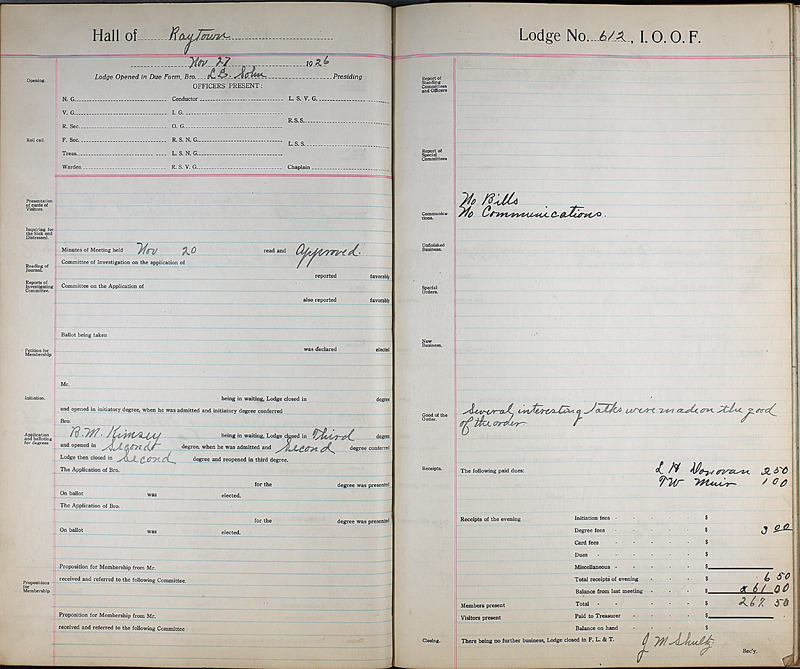 Hall of Raytown
Nov 27 1926
Opening.
Lodge Opened in Due Form, Bro. L.E. John Presiding
OFFICERS PRESENT:
N. G. Conductor L. S. V. G.
V. G. I. G.
R. S. S.
R. Sec. O. G.
Roll call.
F. Sec. R. S. N. G.
L. S. S.
Treas. L. S. N. G.
Warden R. S. V. G. Chaplain
Presentation of cards of Visitors.
Inquiring for the Sick and Distressed.
Minutes of Meeting held Nov 20 read and Approved.
Reading of Journal.
Committee of Investigation on the application of
reported favorably
Reports of Investigating Committee.
Committee on the Application of
also reported favorably
Ballot being taken
Petition for Membership
was declared elected
Mr.
Initiation.
being in waiting, Lodge closed in degree
and opened in initiatory degree, when he was admitted and initiatory degree conferred
Bro.
Application and balloting for degrees
B. M. Kimsey being in waiting, Lodge closed in Third degree
and opened in Second degree, when he was admitted and Second degree conferred
Lodge then closed in Second degree and reopened in third degree.
The Application of Bro.
for the degree was presented
On ballot was elected.
The Application of Bro.
for the degree was presented
On ballot was elected.
Proposition for Membership from Mr.
Propositions for Membership
received and referred to the following Committee.
Proposition for Membership from Mr.
received and referred to the following Committee
Lodge No. 612, I. O. O. F.
Report of Standing Committees and Officers
Report of Special Committees
No Bills
Communications.
No Communications.
Unfinished Business.
Special Orders.
New Business.
Good of the Order.
Several interesting talks were made on the good
of the order
Receipts.
The following paid dues: L H Donovan 2 50
T W Muir 1 00
Receipts of the evening Initiation fees $
Degree fees $ 3 00
Card fees $
Dues $
Miscellaneous $
Total receipts of evening $ 6 50
Balance from last meeting $ 261 00
Members present Total $ 267 50
Visitors present Paid to Treasurer $
Balance on hand $
Closing.
There being no further business, Lodge closed in F. L. & T. J M Shultz
Sec'y.